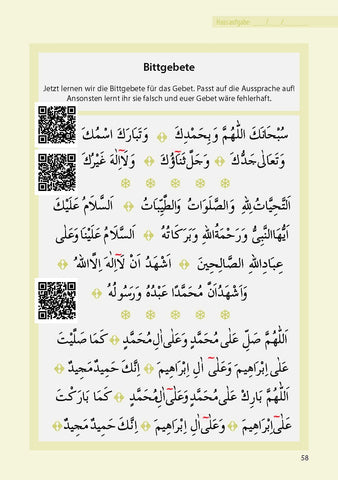 Hausaufgabe: __ / __ / ____
Bittgebete
Jetzt lernen wir die Bittgebete für das Gebet. Passt auf die Aussprache auf!
Ansonsten lernt ihr sie falsch und euer Gebet wäre fehlerhaft.
سُبْحَانَكَ اللّٰهُمَّ وَبِحَمْدِكَ وَتَبَارَكَ اسْمُكَ
وَتَعَالٰى جَدُّكَ وَجَلَّ ثَنَاؤُكَ وَلَآ اِلٰهَ غَيْرُكَ
اَلتَّحِيَّاتُ لِلّٰهِ وَالصَّلَوَاتُ وَالطَّيِّبَاتُ اَلسَّلَامُ عَلَيْكَ
اَيُّهَا النَّبِىُّ وَرَحْمَةُ اللّٰهِ وَبَرَكَاتُهُ اَلسَّلَامُ عَلَيْنَا وَعَلٰى
عِبَادِ اللّٰهِ الصَّالِحِينَ اَشْهَدُ اَنْ لَآ اِلٰهَ اِلَّا اللّٰهُ
وَاَشْهَدُ اَنَّ مُحَمَّدًا عَبْدُهُ وَرَسُولُهُ
اَللّٰهُمَّ صَلِّ عَلٰى مُحَمَّدٍ وَعَلٰٓى اٰلِ مُحَمَّدٍ كَمَا صَلَّيْتَ
عَلٰٓى اِبْرَاهِيمَ وَعَلٰٓى اٰلِ اِبْرَاهِيمَ اِنَّكَ حَمِيدٌ مَجِيدٌ
اَللّٰهُمَّ بَارِكْ عَلٰى مُحَمَّدٍ وَعَلٰٓى اٰلِ مُحَمَّدٍ كَمَا بَارَكْتَ
عَلٰٓى اِبْرَاهِيمَ وَعَلٰٓى اٰلِ اِبْرَاهِيمَ اِنَّكَ حَمِيدٌ مَجِيدٌ
58